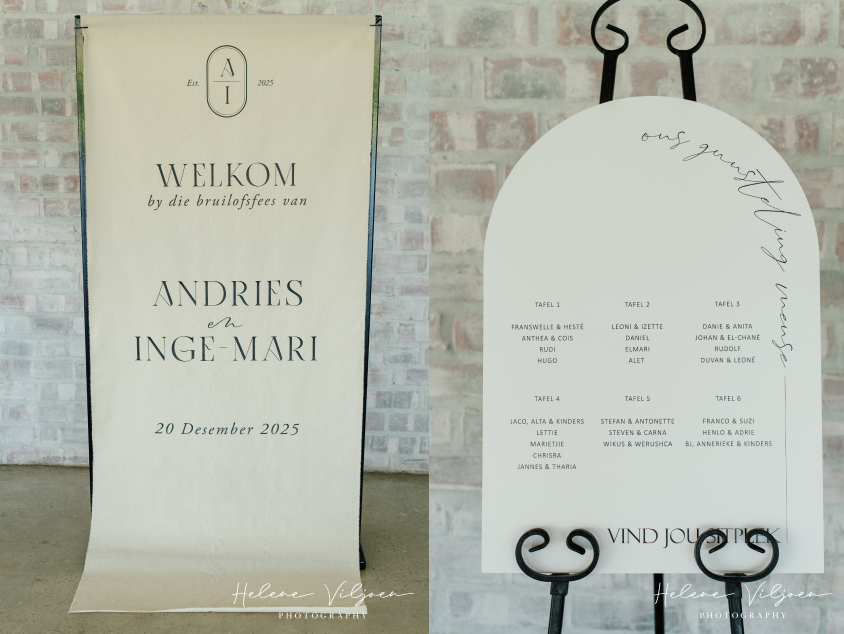 A
Est. 2025
I
WELKOM
by die bruilofsfees van
ANDRIES
en
INGE-MARI
20 Desember 2025
Helene Viljoen
PHOTOGRAPHY
ons gunsteling mense
TAFEL 1
FRANSWELLE & HESTÉ
ANTHEA & COIS
RUDI
HUGO
TAFEL 2
LEONI & IZETTE
DANIEL
ELMARI
ALET
TAFEL 3
DANIE & ANITA
JOHAN & EL-CHANÉ
RUDOLF
DUVAN & LEONÉ
TAFEL 4
JACO, ALTA & KINDERS
LETTIE
MARIETJIE
CHRISRA
JANNES & THARIA
TAFEL 5
STEFAN & ANTONETTE
STEVEN & CARNA
WIKUS & WERUSHCA
TAFEL 6
FRANCO & SUZI
HENLO & ADRIE
BJ, ANNERIEKE & KINDERS
VIND JOU SITPLEK
Helene Viljoen
PHOTOGRAPHY